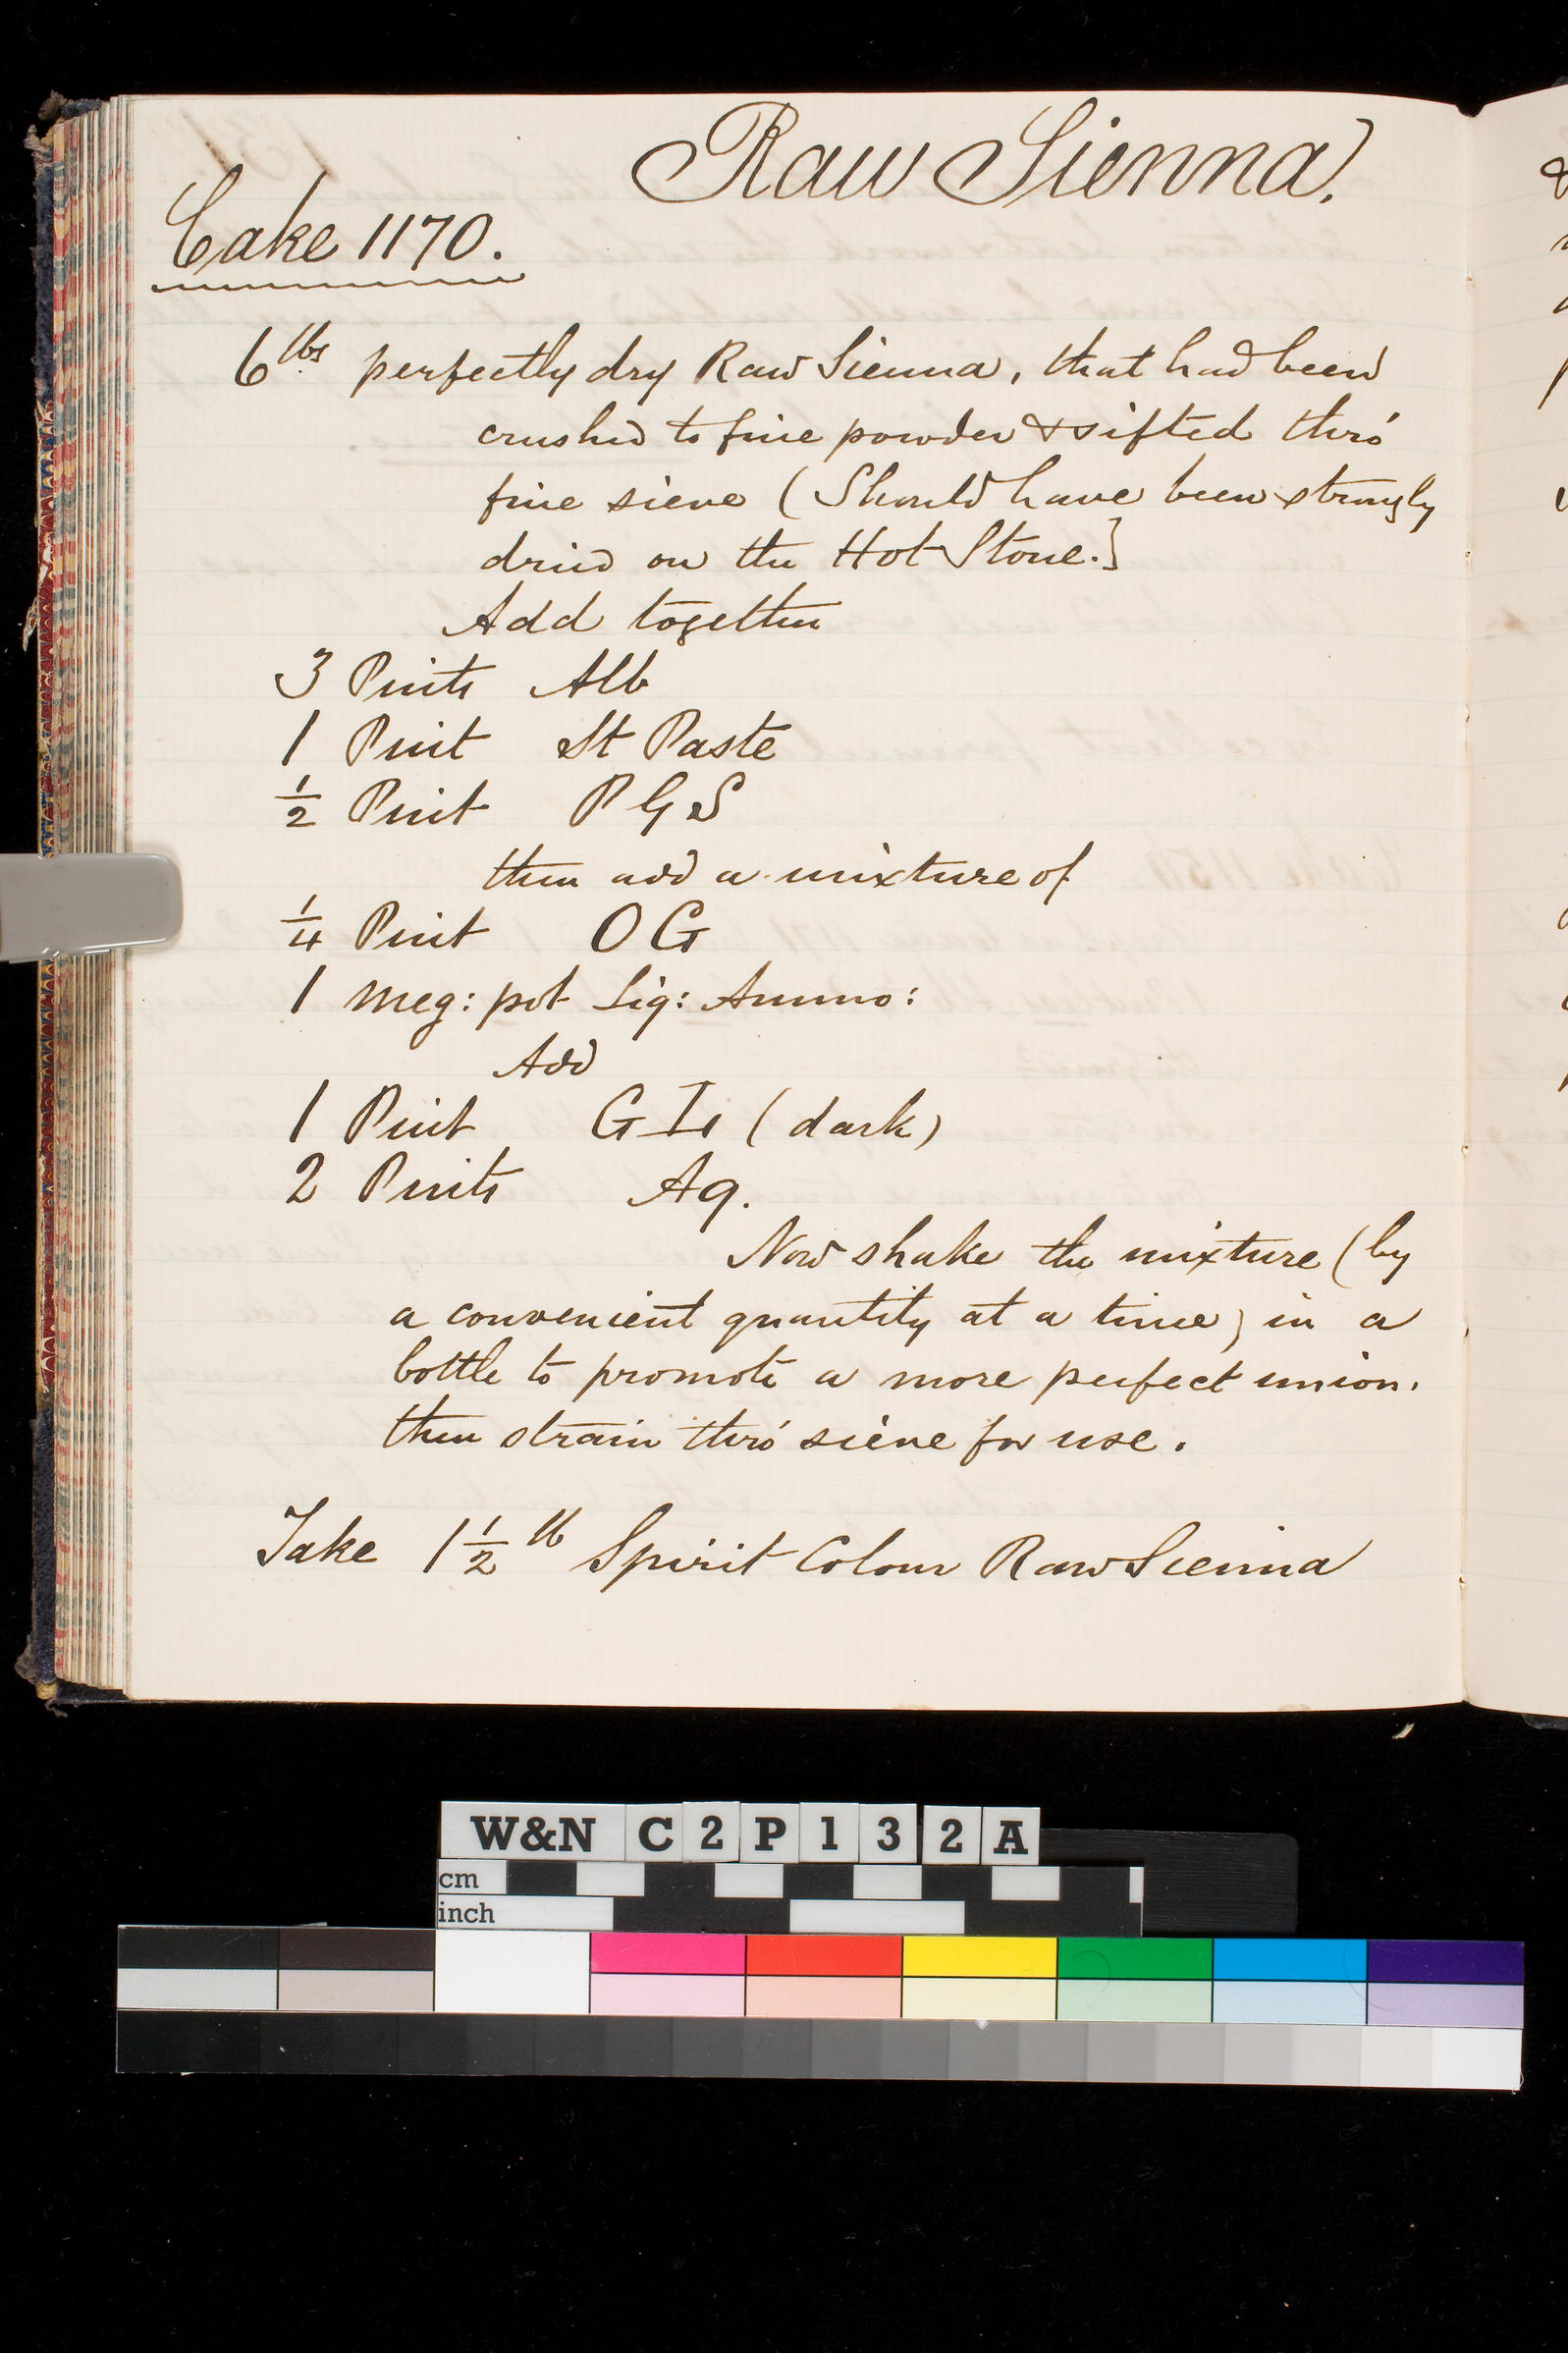 Raw Sienna.
Cake 1170.
6 lbs perfectly dry Raw Sienna, that had been
crushed to fine powder & sifted thro'
fine sieve (Should have been strongly
dried on the Hot Stone.]
Add together
3 Pints Alb
1 Pint St Paste
1/2 Pint P G S
then add a mixture of
1/4 Pint O G
1 Meg: pot Liq: Ammo:
Add
1 Pint G I (dark)
2 Pints Aq.
Now shake the mixture (by
a convenient quantity at a time) in a
bottle to promote a more perfect union.
then strain thro' sieve for use.
Take 1 1/2 lb Spirit Colour Raw Sienna
W&N C2P132A
cm
inch